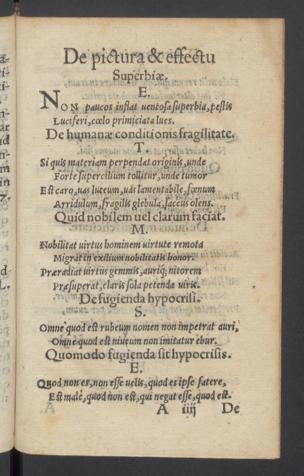 De pictura & effectu
Superbiæ.
E.
NON paucos inflat uentosa superbia, pestis
Luciferi, cœlo primiciata lues.
De humanæ conditionis fragilitate.
T.
Si quis materiam perpendat originis, unde
Forte supercilium tollitur, unde tumor
Est caro, uas luteum, uas lamentabile, fœnum
Arridulum, fragilis glebula, saccus olens.
Quid nobilem uel clarum faciat.
M.
Nobilitat uirtus hominem uirtute remota
Migrat in exilium nobilitatis honor.
Præradiat uirtus gemmis, auriq; nitorem
Præsuperat, claris sola petenda uiris.
De fugienda hypocrisi.
S.
Omne quod est rubeum nomen non impetrat auri,
Omne quod est niueum non imitatur ebur.
Quomodo fugienda sit hypocrisis.
E.
Quod non es, non esse uelis, quod es ipse fatere,
Est malè, quod non est, qui negat esse, quod est.
A A iiij De